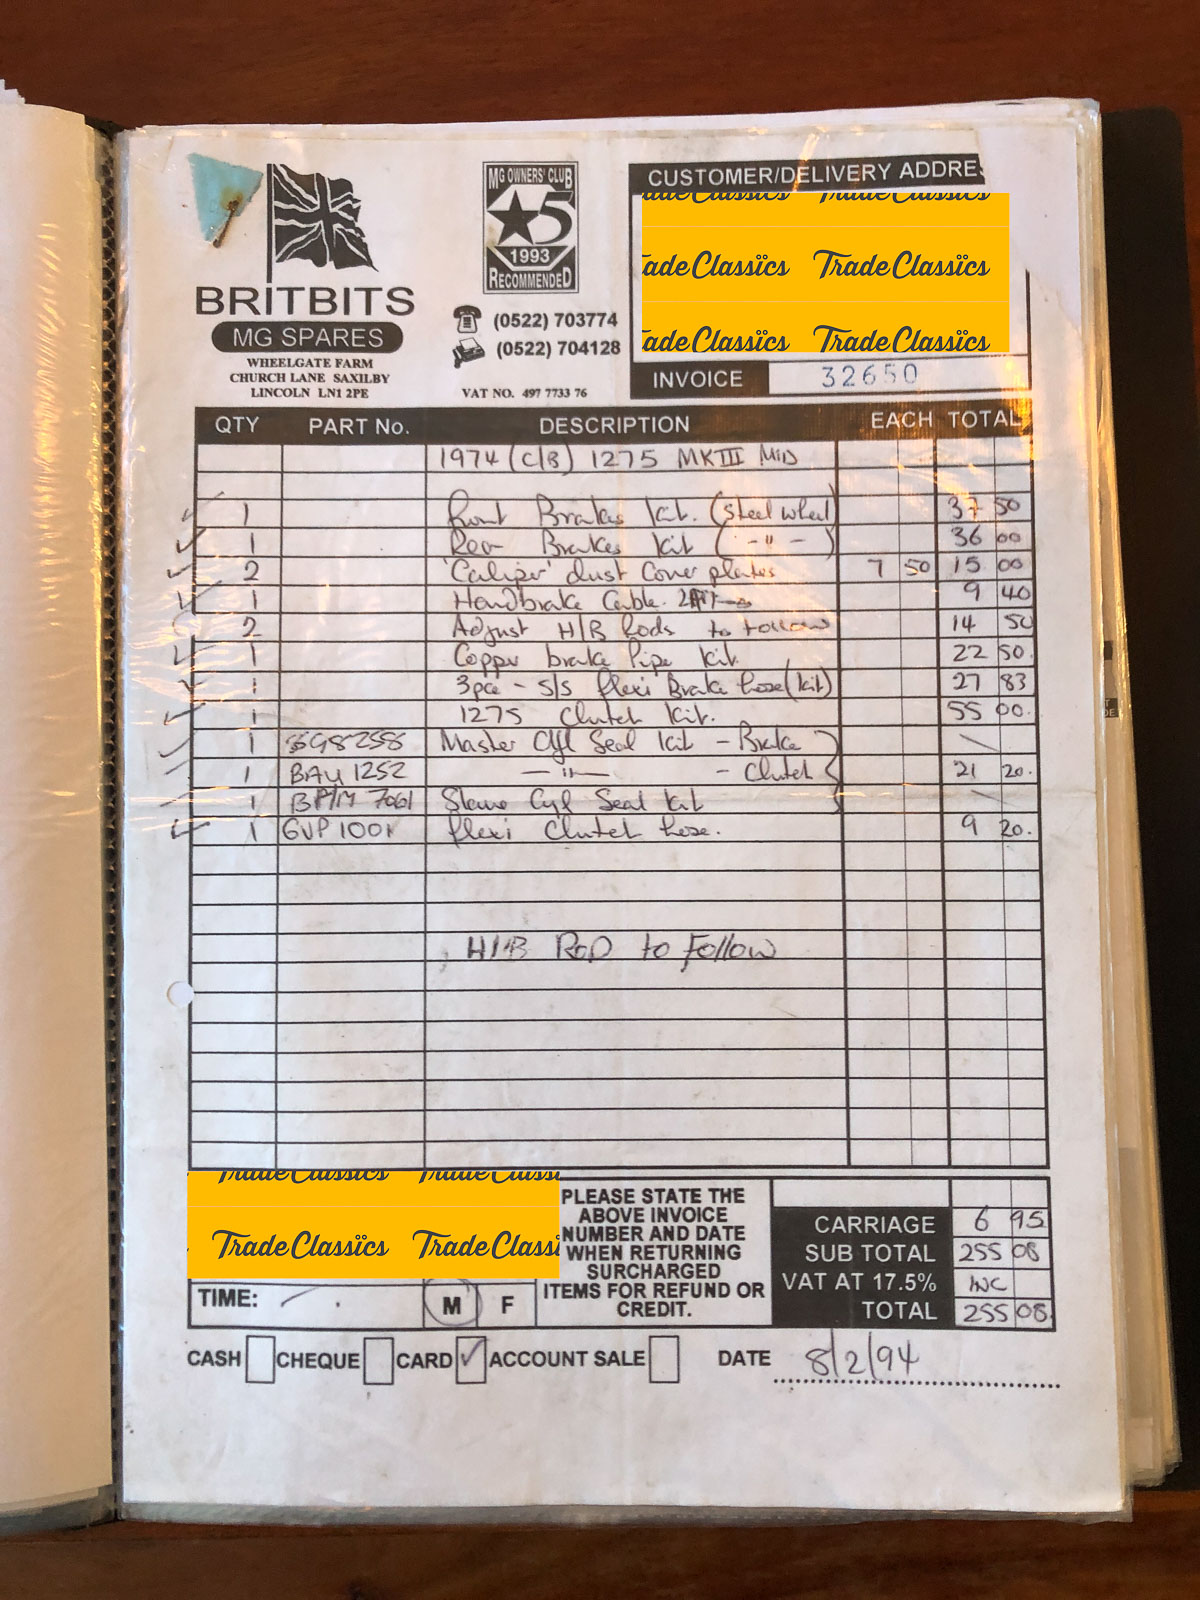 MG OWNERS' CLUB
5
1993
RECOMMENDED
BRITBITS
MG SPARES
WHEELGATE FARM
CHURCH LANE SAXILBY
LINCOLN LN1 2PE
(0522) 703774
(0522) 704128
VAT NO. 497 7733 76
CUSTOMER/DELIVERY ADDRE
TradeClassics TradeClassics
adeClassics TradeClassics
adeClassics TradeClassics
INVOICE 32650
QTY PART No. DESCRIPTION EACH TOTAL
1974 (C/B) 1275 MKIII MID
1 front Brakes kit. (Steel wheel) 37 50
1 Rear Brakes kit ( - " - ) 36 00
2 'Caliper' dust Cover plates 7 50 15 00
1 Handbrake Cable. 9 40
2 Adjust H/B Rods to follow 14 50
1 Copper brake Pipe kit 22 50.
1 3pce - S/S flexi Brake hose (kit) 27 83
1 1275 Clutch kit. 55 00.
1 Master Cyl Seal kit - Brake
1 BAU 1252 — " — - Clutch 21 20.
1 Slave Cyl Seal kit
1 flexi Clutch hose. 9 20.
H/B ROD to Follow
TradeClassics TradeClassi
TradeClassics TradeClassi
PLEASE STATE THE
ABOVE INVOICE
NUMBER AND DATE
WHEN RETURNING
SURCHARGED
ITEMS FOR REFUND OR
CREDIT.
CARRIAGE 6 95
SUB TOTAL 255 08
VAT AT 17.5% INC
TOTAL 255 08.
TIME: M F
CASH CHEQUE CARD ✓ ACCOUNT SALE DATE 8/2/94